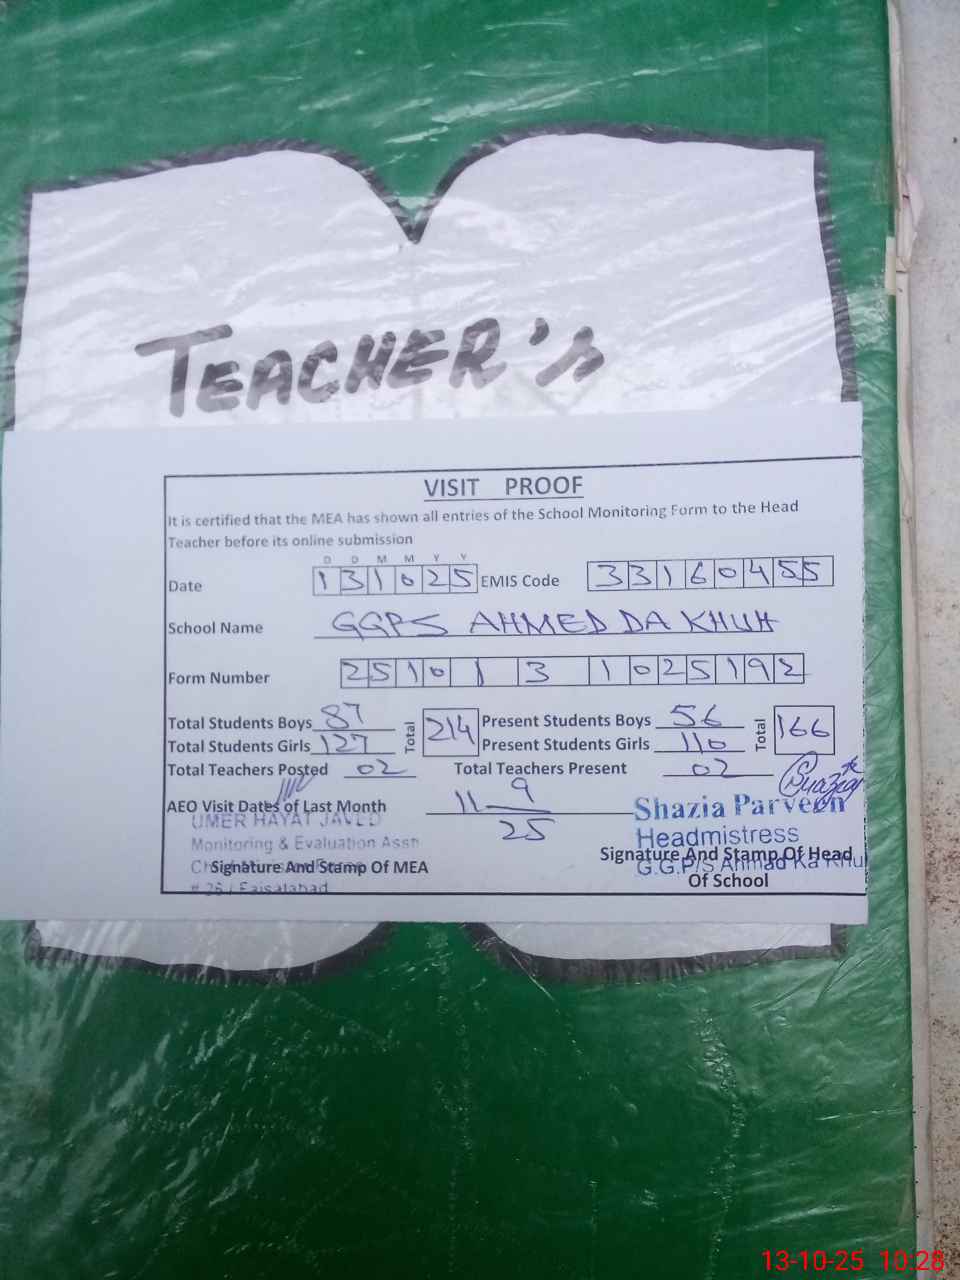 TEACHER's
VISIT PROOF
It is certified that the MEA has shown all entries of the School Monitoring Form to the Head
Teacher before its online submission
D D M M Y Y
Date 131025 EMIS Code 33160455
School Name GGPS AHMED DA KHUH
Form Number 2510131025192
Total Students Boys 87 Total 214 Present Students Boys 56 Total 166
Total Students Girls 127 Present Students Girls 110
Total Teachers Posted 02 Total Teachers Present 02
AEO Visit Dates of Last Month 11 9 25
UMER HAYAT JAVED
Monitoring & Evaluation Asstt
Faisalabad
Signature And Stamp Of MEA
Shazia Parveen
Headmistress
G.G.P/S Ahmad Ka Khu
Signature And Stamp Of Head
Of School
13-10-25 10:28